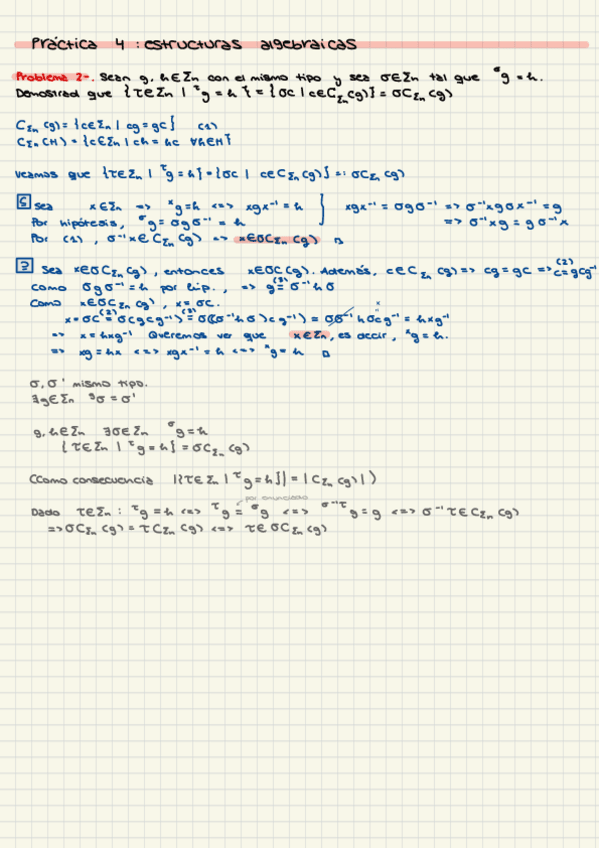 Práctica 4 : estructuras algebraicas
Problema 2-. Sean g, h∈Σn con el mismo tipo y sea σ∈Σn tal que ᵟg = h.
Demostrad que {τ∈Σn | ᵗg = h} = {σc | c∈C_Σn(g)} = σC_Σn(g)
C_Σn(g) = {c∈Σn | cg = gc} (1)
C_Σn(H) = {c∈Σn | ch = hc ∀h∈H}
Veamos que {τ∈Σn | ᵗg = h} = {σc | c∈C_Σn(g)} =: σC_Σn(g)
⊆ Sea x∈Σn => ˣg = h <=> xgx⁻¹ = h } xgx⁻¹ = σgσ⁻¹ => σ⁻¹xgσx⁻¹ = g
Por hipótesis, ᵟg = σgσ⁻¹ = h => σ⁻¹xg = gσ⁻¹x
Por (1), σ⁻¹x∈C_Σn(g) => x∈σC_Σn(g) □
⊇ Sea x∈σC_Σn(g), entonces x∈σC(g). Además, c∈C_Σn(g) => cg = gc => (2) c = gcg⁻¹
como σgσ⁻¹ = h por hip., => g (3)= σ⁻¹hσ
Como x∈σC_Σn(g), x = σc.
x = σc (2)= σ(gcg⁻¹) (3)= σ((σ⁻¹hσ)cg⁻¹) = σσ⁻¹hσcg⁻¹ = hxg⁻¹
=> x = hxg⁻¹ Queremos ver que x∈Σn, es decir, ˣg = h.
=> xg = hx <=> xgx⁻¹ = h <=> ˣg = h □
σ, σ' mismo tipo.
∃g∈Σn ᵍσ = σ'
g, h∈Σn ∃σ∈Σn ᵟg = h
{τ∈Σn | ᵗg = h} = σC_Σn(g)
(Como consecuencia |{τ∈Σn | ᵗg = h}| = |C_Σn(g)|)
por enunciado
Dado τ∈Σn : ᵗg = h <=> ᵗg = ᵟg <=> σ⁻¹τg = g <=> σ⁻¹τ∈C_Σn(g)
=> σC_Σn(g) = τC_Σn(g) <=> τ∈σC_Σn(g)